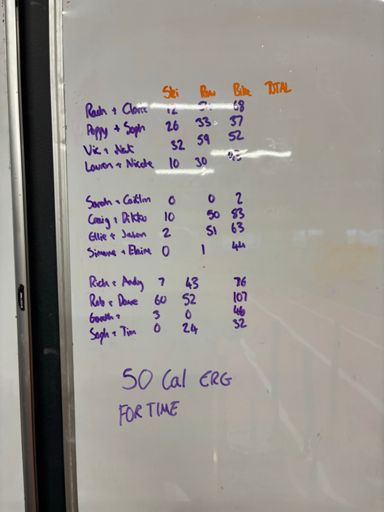 Ski Row Bike TOTAL
Rach + Claire 12 68
Poppy + Soph 26 33 37
Vic + Nat 32 59 52
Lauren + Nicole 10 30
Sarah + Caitlin 0 0 2
Craig + Dikko 10 50 83
Ellie + Jason 2 51 63
Simone + Elaine 0 1 44
Rich + Andy 7 43 76
Rob + Dave 60 52 107
Gareth + 3 0 46
Soph + Tim 0 24 32
50 Cal ERG
FOR TIME